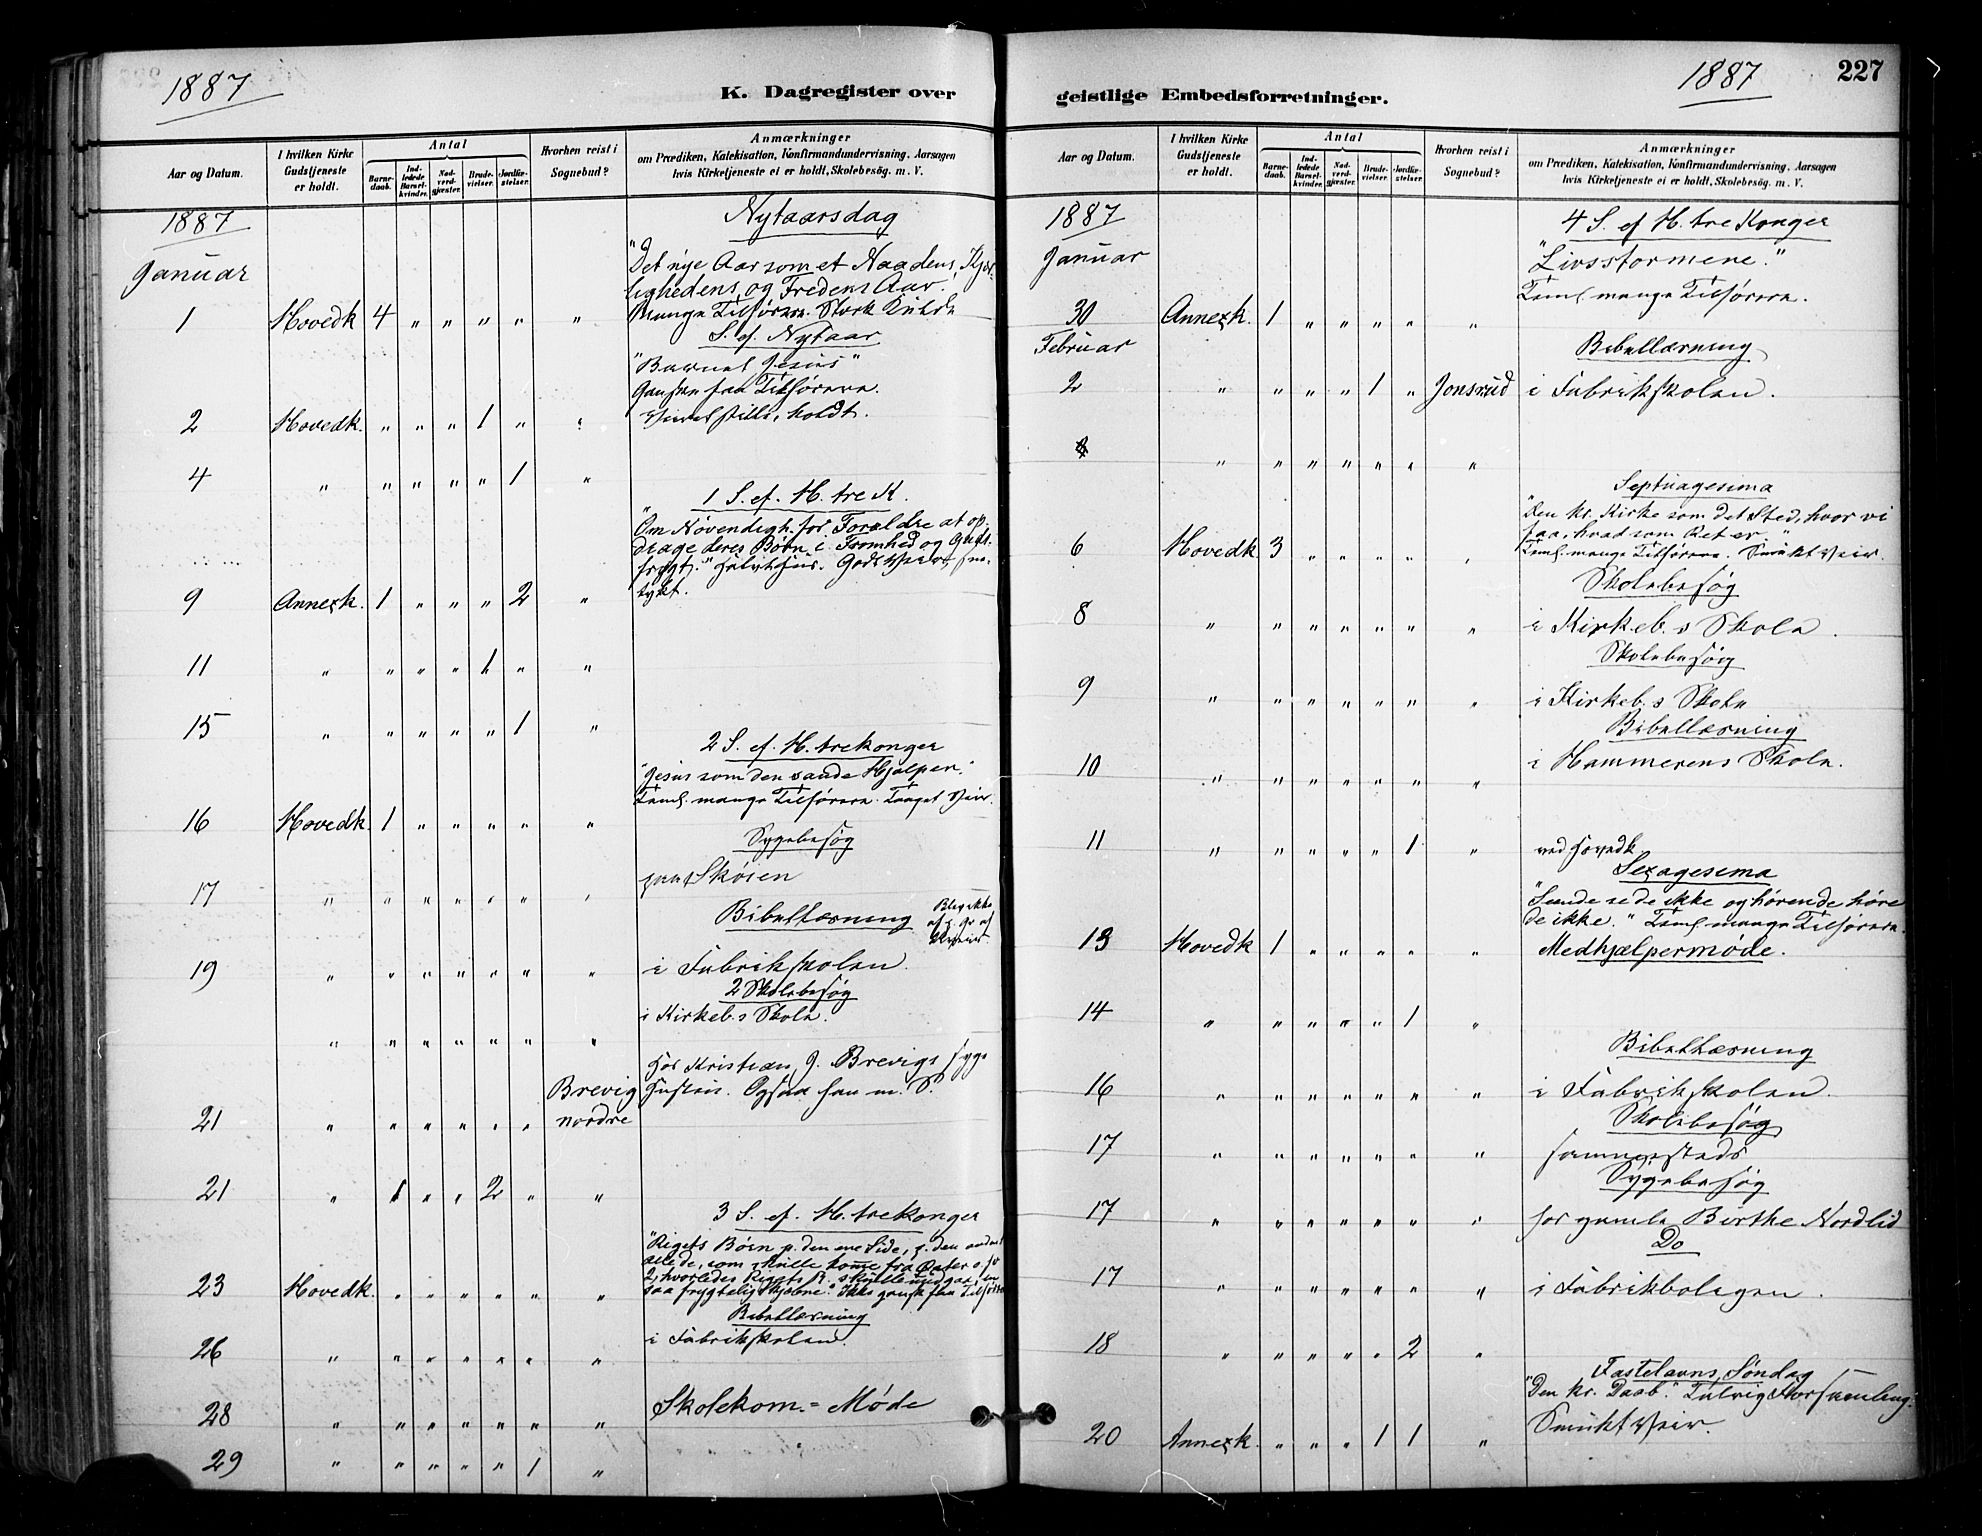 1887
K. Dagregister over
Aar og Datum.
I hvilken Kirke Gudstjeneste er holdt.
Antal
Barnedaab.
Indledede Barselkvinder.
Nadverdgjæster.
Brudevielser.
Jordfæstelser.
Hvorhen reist i Sognebud?
Anmærkninger
om Prædiken, Katekisation, Konfirmandundervisning, Aarsagen
hvis Kirketjeneste ei er holdt, Skolebesög. m. V.
1887
Nytaarsdag
Januar
"Det nye Aar som et Naadens, Kjær-
lighedens og Fredens Aar.
1 Hovedk 4 " " " " " Mange Tilhørere. Stærk Kulde
S. ef. Nytaar
"Barnet Jesus"
Ganske faa Tilhørere.
2 Hovedk. " " " 1 " " stille, koldt.
4 " " " " " 1 "
1 S. ef. H. tre K.
"Om Nødvendigh. for Forældre at op-
drage deres Børn i Fromhed og Guds-
frygt." Godt
9 Annexk. 1 " " " 2 " tykt.
11 " " " " 1 " "
15 " " " " " 1 "
2 S. ef. H. trekonger
"Jesus som den sande Hjælper."
Teml. mange Tilhørere. Taaget Veir.
16 Hovedk. 1 " " " " "
Sygebesøg
17 " " " " " " " paa Skøien
Bibellæsning
19 " " " " " " " i Fabrikskolen.
2 Skolebesøg
i Kirkeb.s Skole.
" " " " " " "
hos Kristian J. Brevigs syge
Brevig Hustru. Ogsaa han m. S.
21 " " " " " " nordre
21 " 1 " " 2 " "
3 S. ef. H. trekonger
"Rigets Børn p. den ene Side, p. den anden
alle de, som skulle komme fra Øster o. s. v
23 Hovedk. " " " " " " saa frygtelig Skjæbne." Ikke ganske faa Tilhørere
Bibellæsning
26 " " " " " " " i Fabrikskolen.
28 " " " " " " " Skolekom.= Møde
29 " " " " " 1 "
1887
227
geistlige Embedsforretninger.
Aar og Datum.
I hvilken Kirke Gudstjeneste er holdt.
Antal
Barnedaab.
Indledede Barselkvinder.
Nadverdgjæster.
Brudevielser.
Jordfæstelser.
Hvorhen reist i Sognebud?
Anmærkninger
om Prædiken, Katekisation, Konfirmandundervisning, Aarsagen
hvis Kirketjeneste ei er holdt, Skolebesög. m. V.
1887
4 S. ef H. tre Konger
Januar
"Livsstormene."
Teml. mange Tilhørere.
30 Annexk. 1 " " " " "
Februar
Bibellæsning
2 " " " " 1 " Jonsrud i Fabrikskolen.
" " " " " " "
Septuagesima
"Den kr. Kirke som det Sted, hvor vi
faa, hvad som Ret er."
6 Hovedk 3 " " " " " Teml. mange Tilhørere. Smukt Veir.
Skolebesøg
8 " " " " " " " i Kirkeb.s Skole.
Skolebesøg
9 " " " " " " " i Kirkeb.s Skole
Bibellæsning
10 " " " " " " " i Hammerens Skole.
11 " " " " " 1 " ved Hovedk.
Sexagesima
"Seende se de ikke og hørende høre
de ikke." Teml. mange Tilhørere.
13 Hovedk 1 " " " " " Medhjælpermøde.
14 " " " " " 1 "
Bibellæsning
16 " " " " " " " i Fabrikskolen.
Skolebesøg
17 " " " " " " " sammesteds
Sygebesøg
17 " " " " " " " hos gamle Birthe Nordlid
Do
17 " " " " " " " i Fabrikboligen.
18 " " " " " 2 "
Fastelavns Søndag
"Den kr. Daab." Talrig Forsamling.
20 Annexk. " " " 1 1 " Smukt Veir.